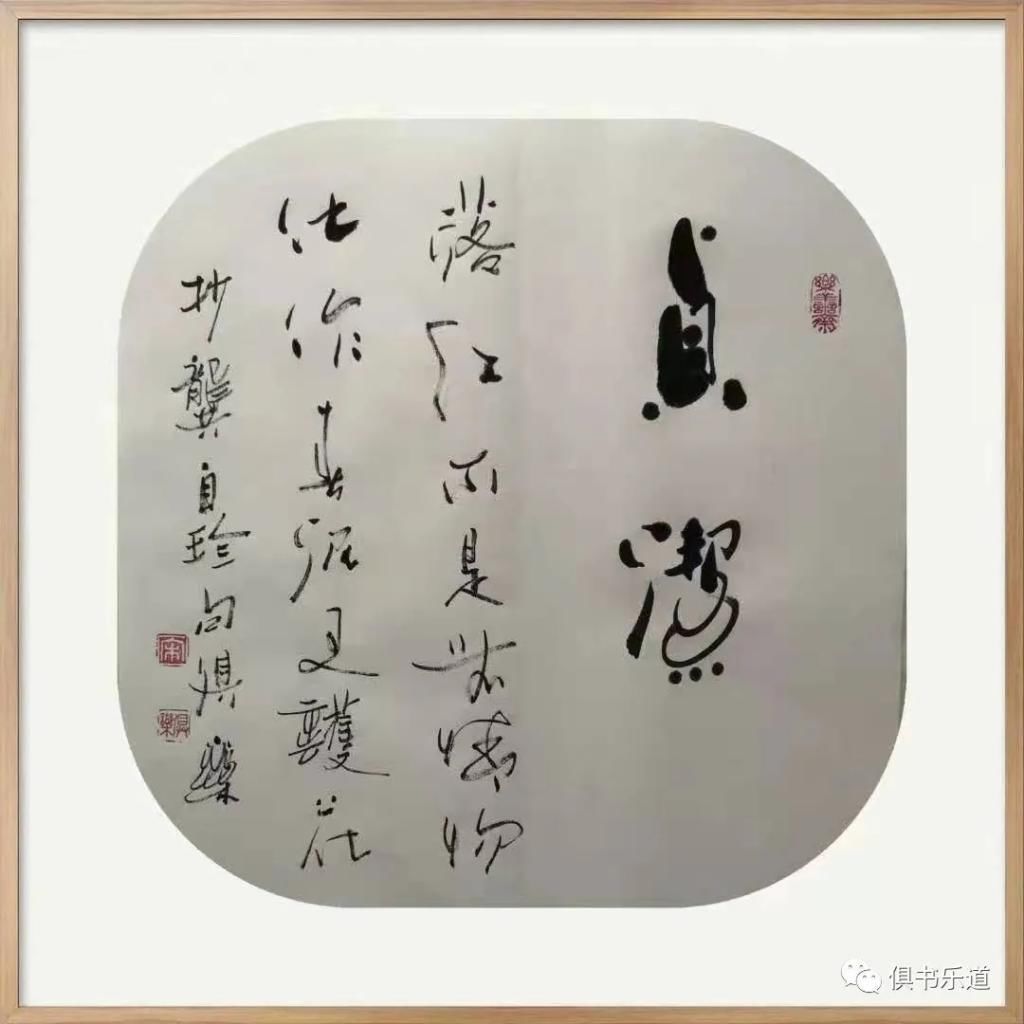 貞潔
落红不是無情物
化作春泥更護花
抄龔自珍句俱樂
宋
俱樂
俱书乐道